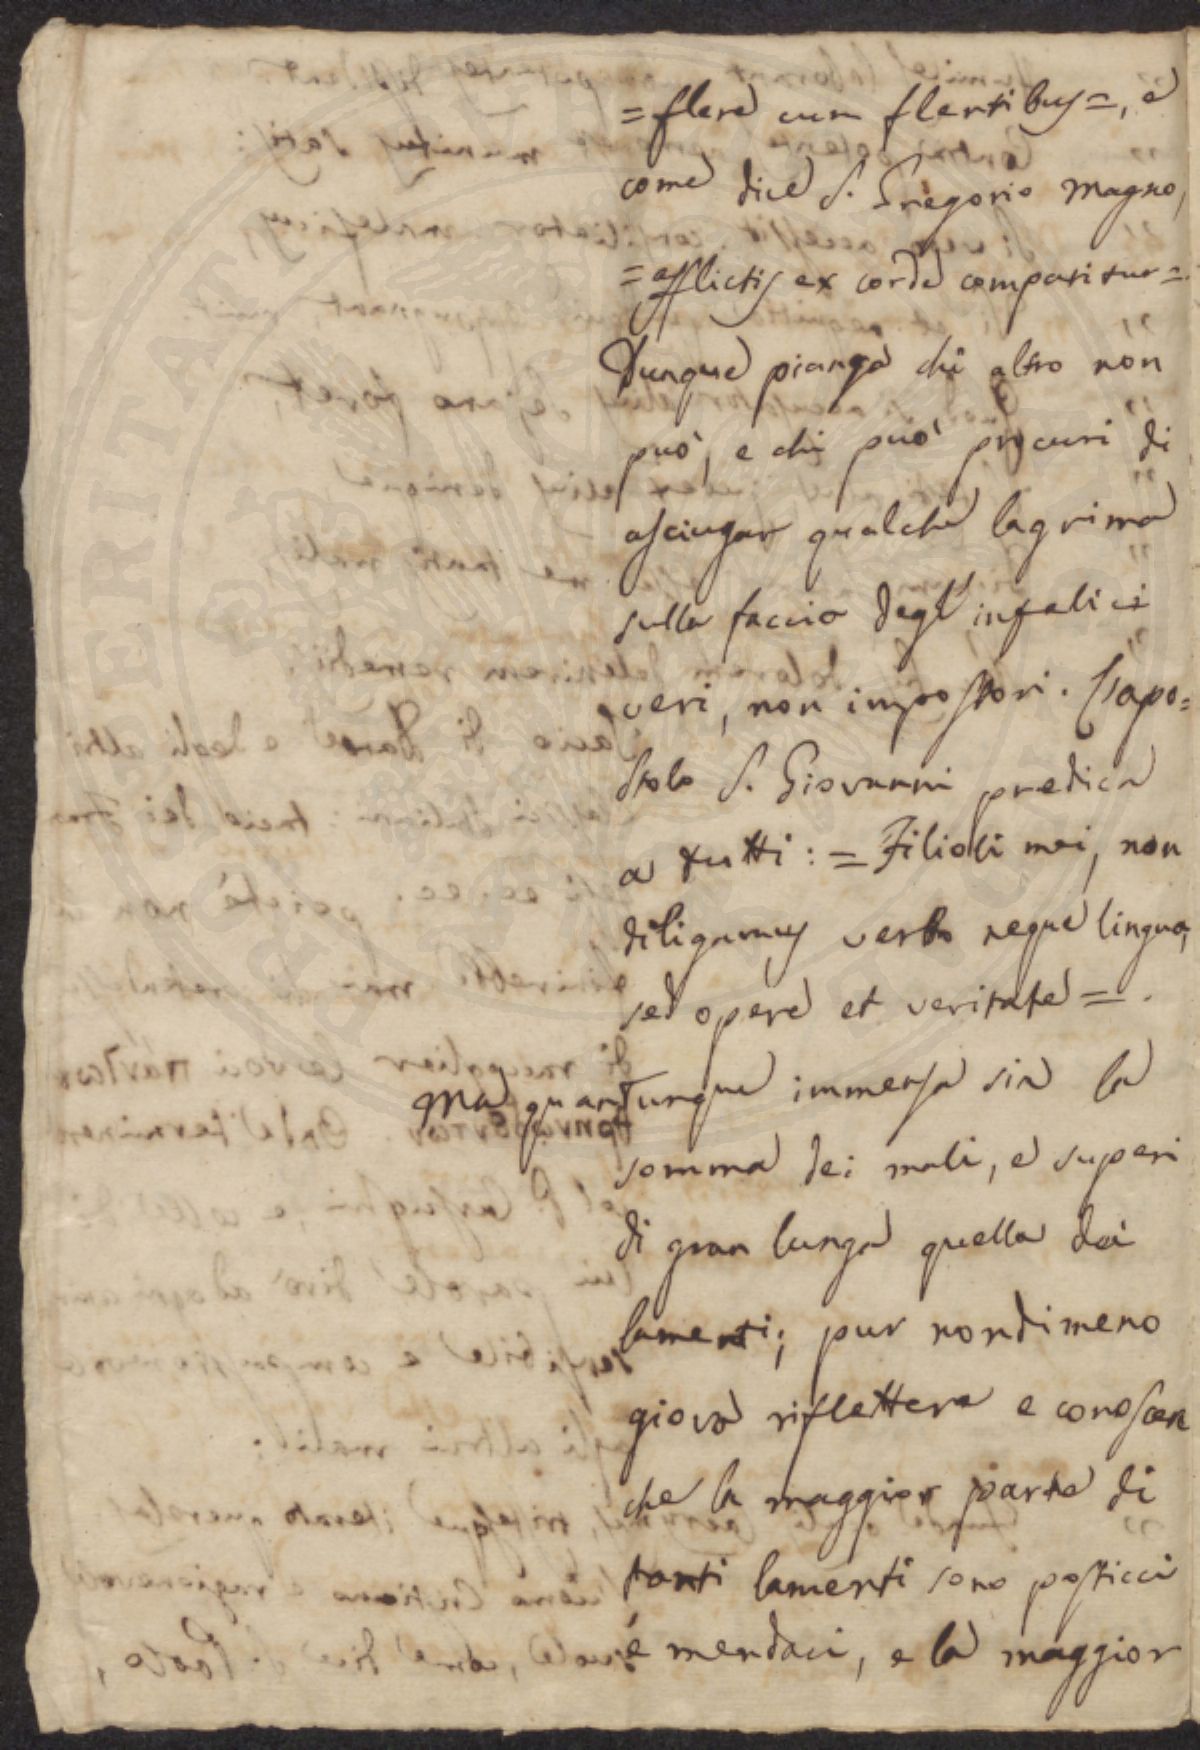 =flere cum flentibus=, e
come dice S. Gregorio Magno,
=afflictis ex corde compatitur=.
Dunque pianga chi altro non
può, e chi può procuri di
asciugar qualche lagrima
sulla faccia degl'infelici
veri, non impostori. L'apo=
stolo S. Giovanni predica
a tutti: = Filioli mei, non
diligamus verbo neque lingua,
sed opere et veritate =.
Ma quantunque immensa sia la
somma dei mali, e superi
di gran lunga quella dei
lamenti; pur nondimeno
giova riflettere e conoscere
che la maggior parte di
tanti lamenti sono posticci
e mendaci, e la maggior